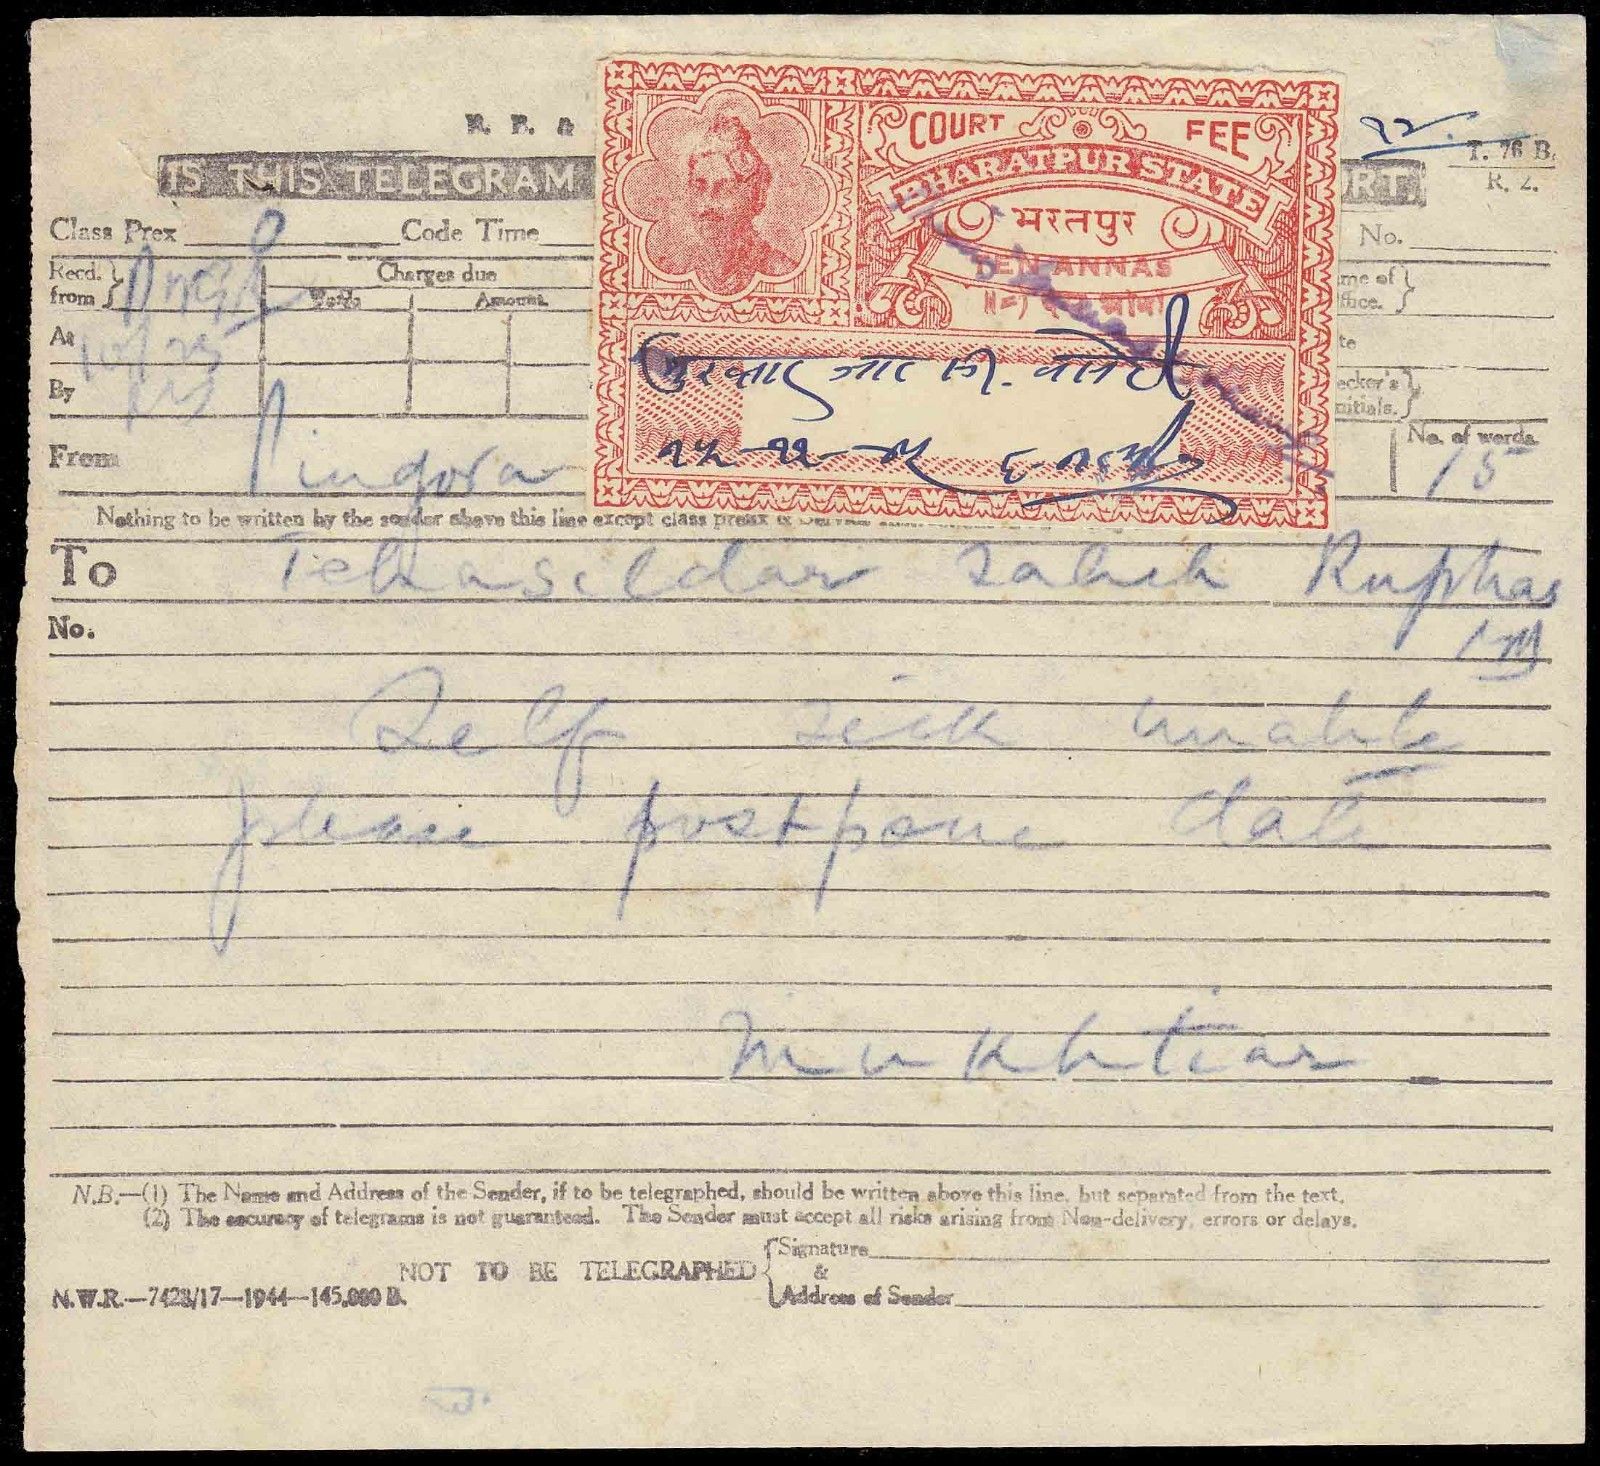 B. B. &
IS THIS TELEGRAM
ORT.
T. 76 B.
R. 2.
Class Prex
Code Time
No.
Recd. from
Charges due
Words
Amount
At 10/25
By
me of
ffice.
te
ecker's
nitials.
No. of words.
15
From Pingora
COURT FEE
BHARATPUR STATE
भरतपुर
TEN ANNAS
Nothing to be written by the sender above this line except class prefix &
To Tehasildar Sahib Rupbas
No.
Self sick unable
please postpone date
Mukhtiar
N.B.—(1) The Name and Address of the Sender, if to be telegraphed, should be written above this line, but separated from the text.
(2) The accuracy of telegrams is not guaranteed. The Sender must accept all risks arising from Non-delivery, errors or delays.
NOT TO BE TELEGRAPHED
Signature
&
Address of Sender
N.W.R.—7423/17—1944—145,000 B.